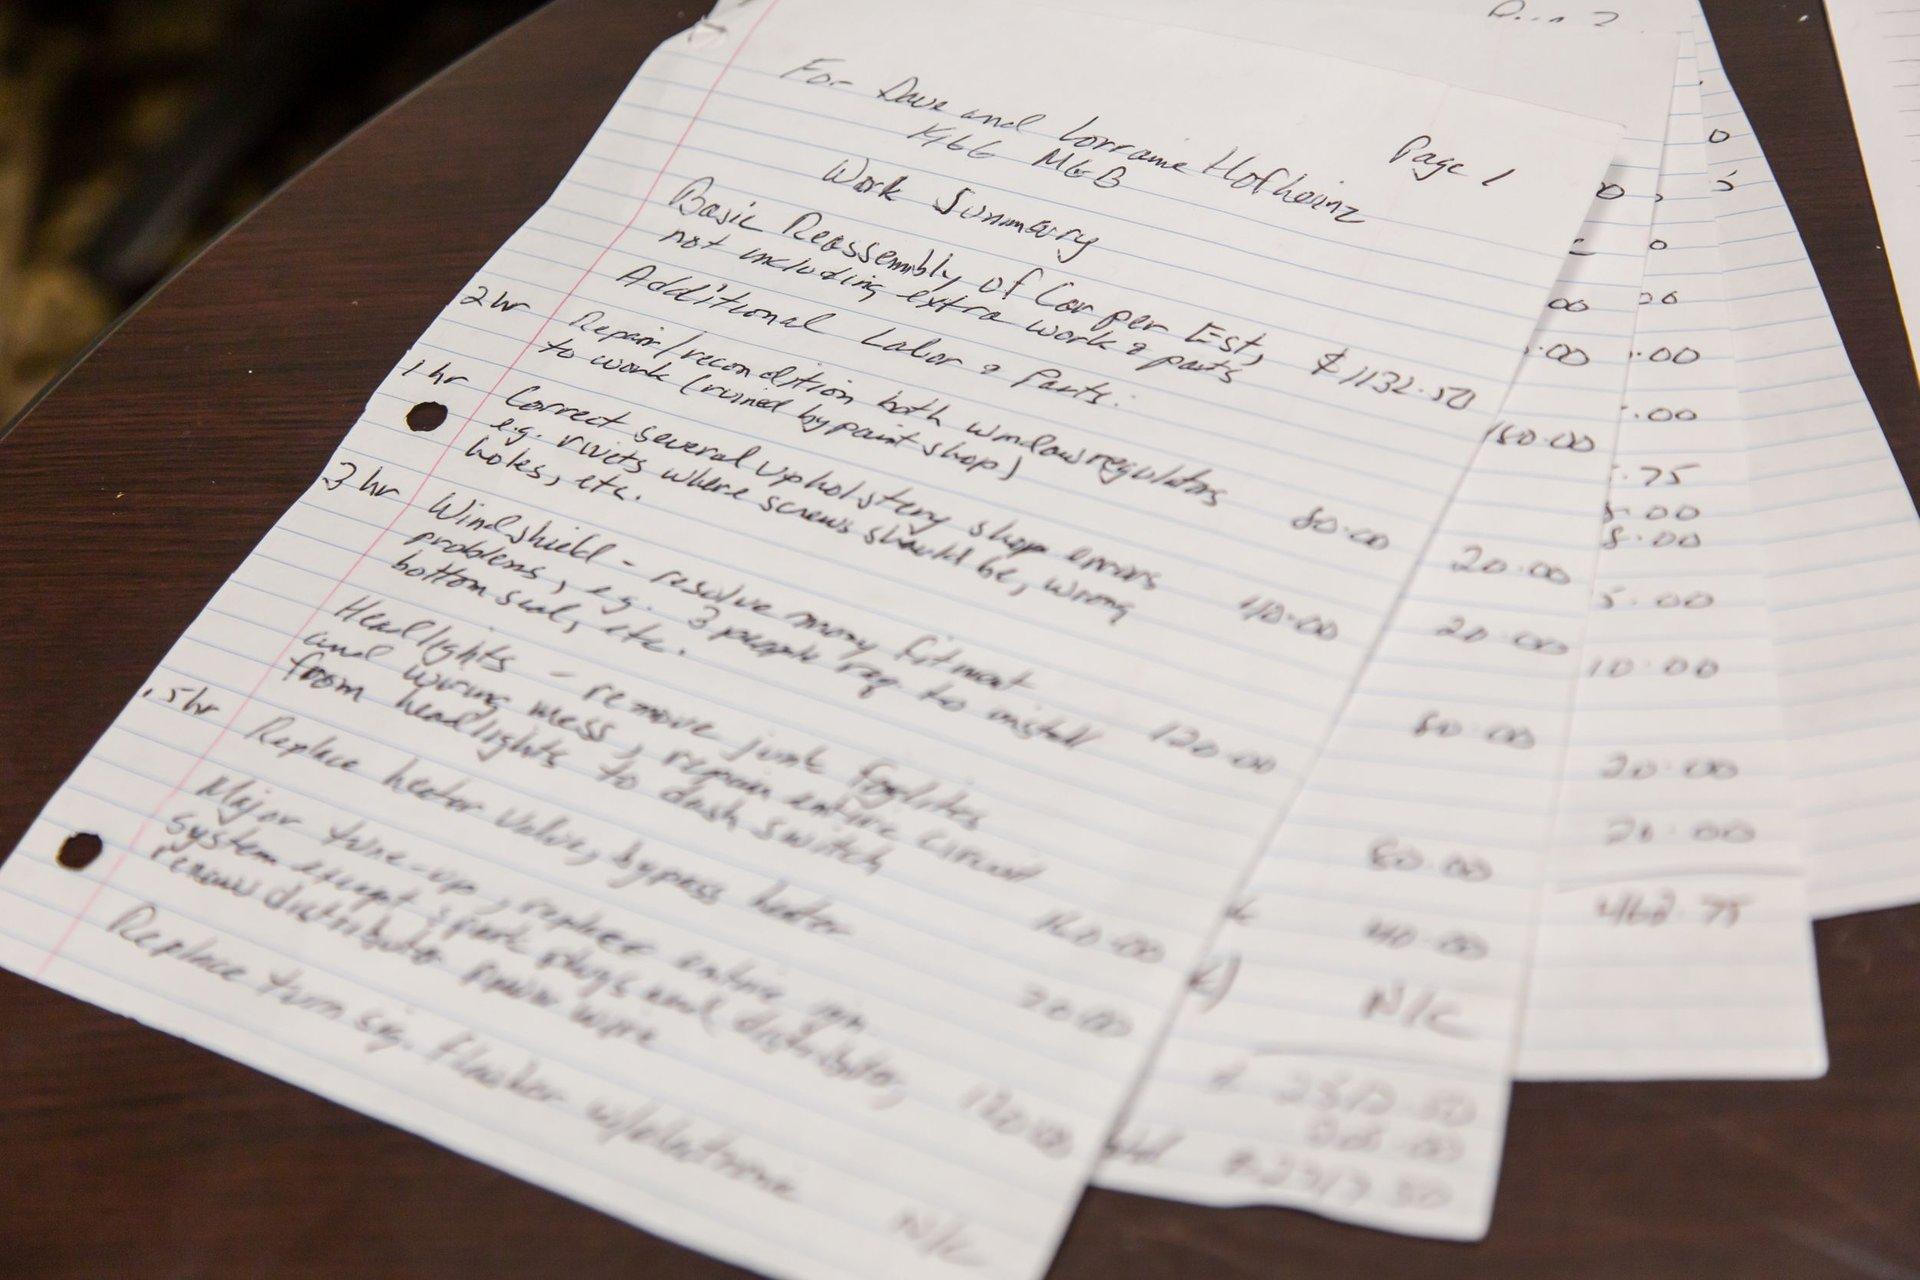 For Dave and Lorraine Hofheinz
Page 1
1966 MGB
Work Summary
Basic Reassembly of Car per Est,
not including extra work & parts $1132.50
Additional Labor & Parts:
2 hr Repair/recondition both window regulators
to work (ruined by paint shop) 80.00
1 hr Correct several upholstery shop errors
e.g. rivets where screws should be, wrong
holes, etc. 40.00
3 hr Windshield - resolve many fitment
problems, e.g. 3 people req to install
bottom seal, etc. 120.00
Headlights - remove junk foglites
and wiring mess, repair entire circuit
from headlights to dash switch 160.00
.5 hr Replace heater valve, bypass heater 20.00
Major tune-up, replace entire ign
system except spark plugs and distributor,
renew distributor wire 120.00
Replace turn sig. flasher w/electronic N/C
00
.00
20.00
20.00
80.00
80.00
40.00
N/C
00
.00
.00
.75
.00
.00
5.00
10.00
20.00
20.00
462.75